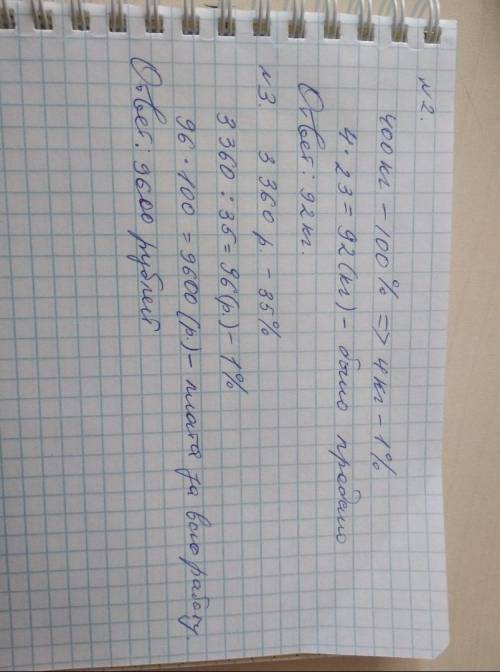 №2.
400 кг - 100% => 4 кг - 1%
4 · 23 = 92 (кг) - было продано
Ответ: 92 кг.
№3. 3 360 р. - 35%
3 360 : 35 = 96 (р.) - 1%
96 · 100 = 9600 (р.) - плата за всю работу.
Ответ: 9600 рублей